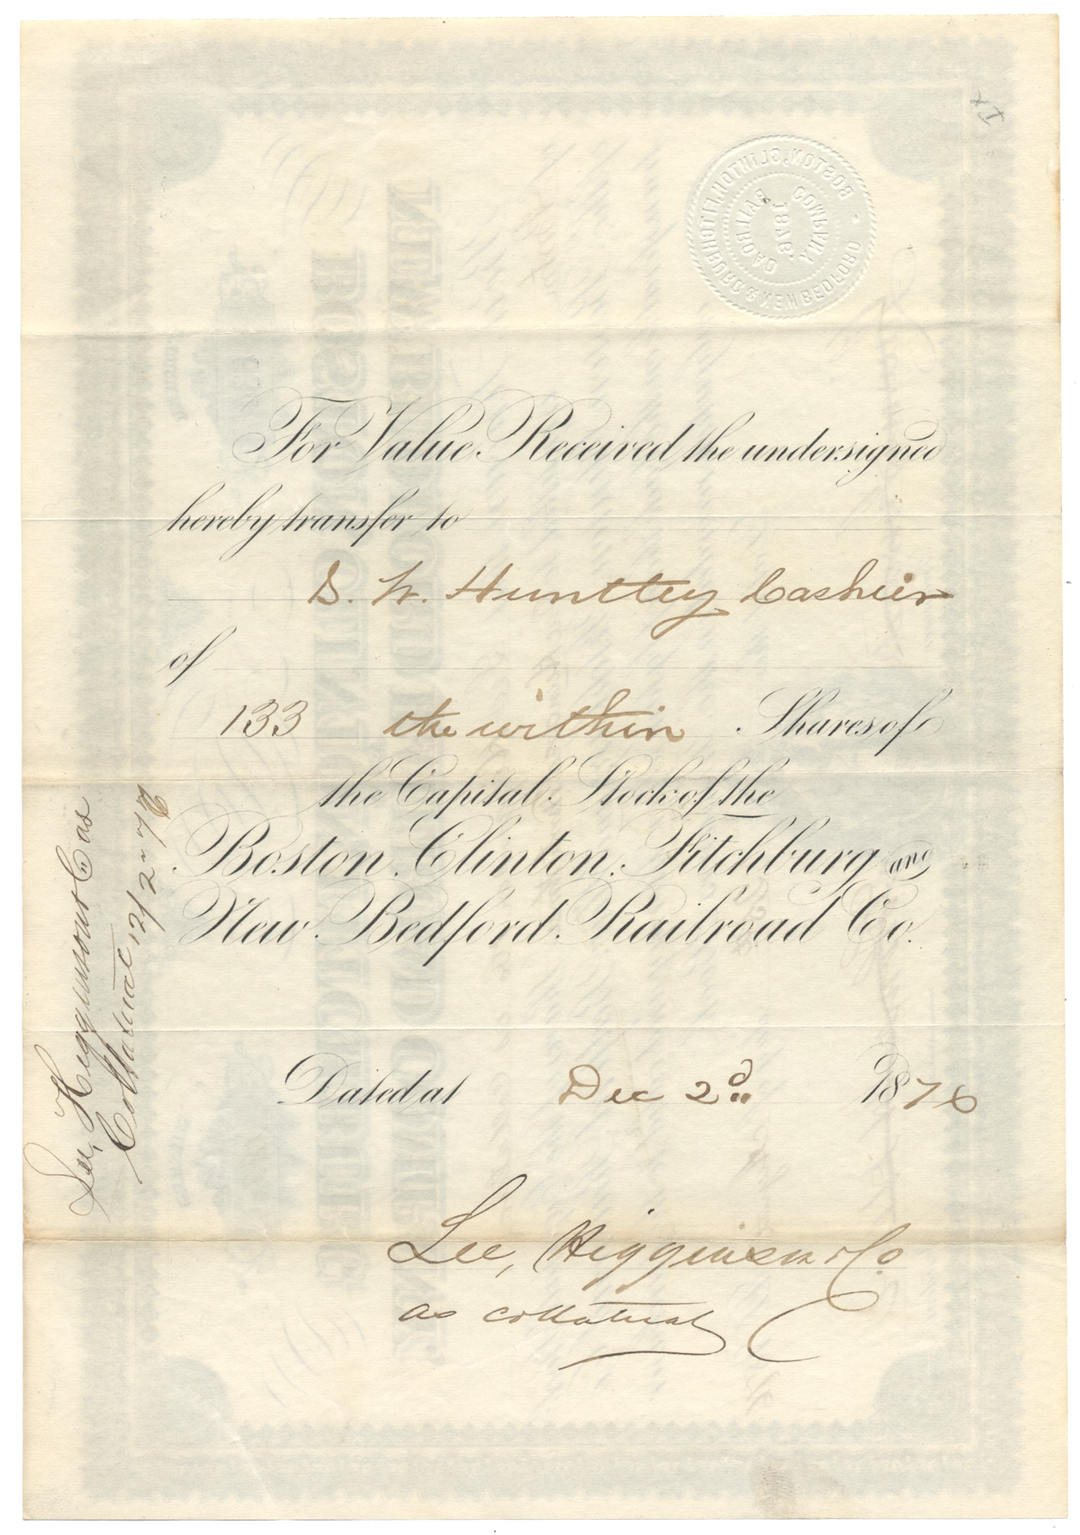 BOSTON, CLINTON, FITCHBURG & NEW BEDFORD
RAILROAD COMPANY
1876.
For Value Received the undersigned
hereby transfer to
S. W. Huntley Cashier
of
133 the within Shares of
the Capital Stock of the
Boston, Clinton, Fitchburg and
New Bedford Railroad Co.
Dated at Dec 2d 1876
Lee, Higginson & Co.
as collateral
Lee, Higginson & Co as
Collateral 12/2-76